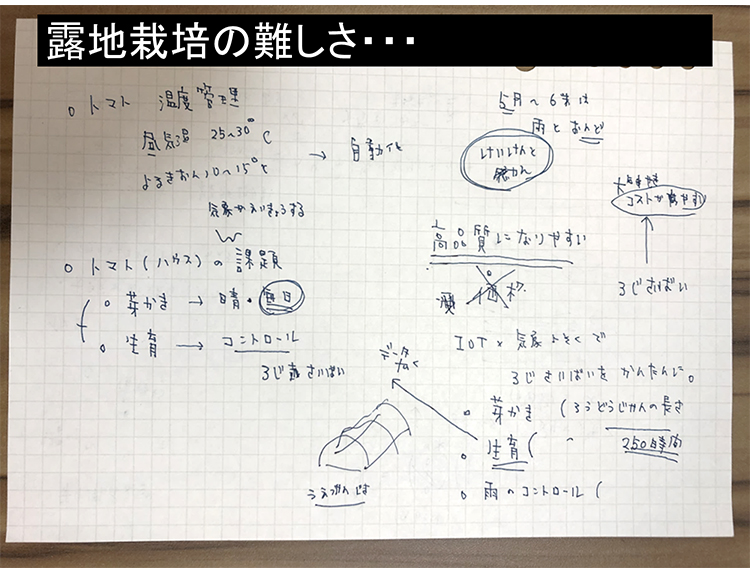 露地栽培の難しさ・・・
○トマト 温度管理
昼気温 25〜30°C
よるきおん10〜15°C
→ 自動化
気象がえいきょうする
○トマト(ハウス)の課題
○芽かき → 晴・毎日
○生育 → コントロール
ろじさいばい
5月〜6月は
雨と おんど
けいけんと
コストがやすい
ろじさいばい
高品質になりやすい
IOT×気象よそくで
ろじさいばいをかんたんに。
○芽かき (ろうどうじかんの長さ
○生育( 〃 250時間
○雨のコントロール(
データ